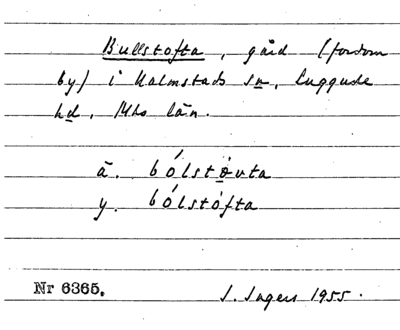 Bullstofta, gård (fordom
by) i Halmstads sn, Luggude
hd, Mhs län.
ä. bólstòvta
y. bólstófta
Nr 6365.
I. Ingers 1955.